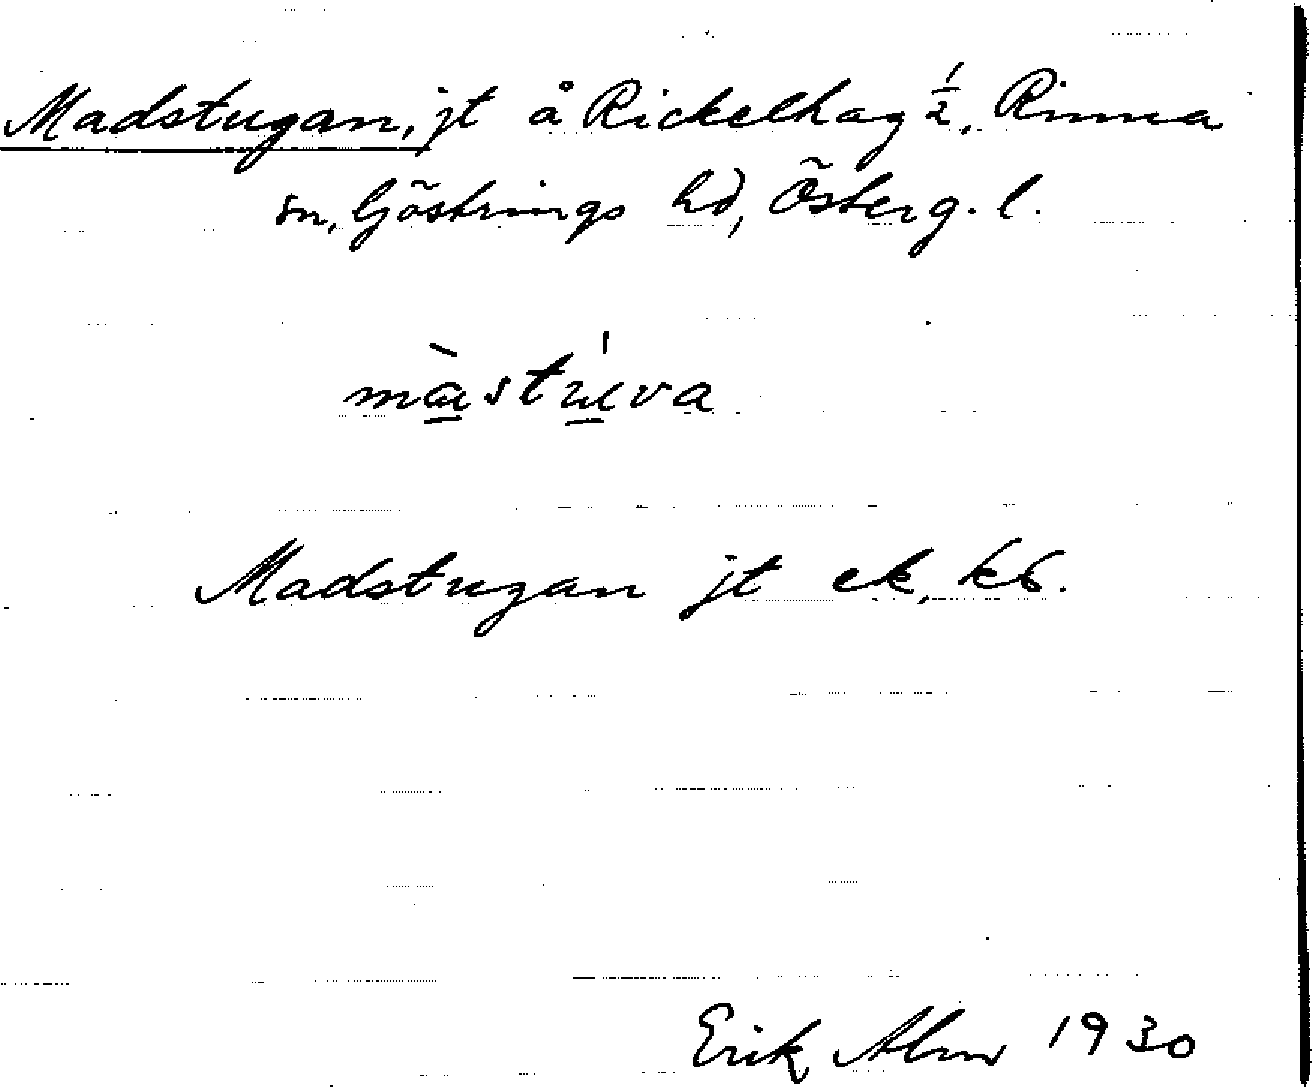 Madstugan, jt å Rickelhag ½, Rinna
sn, Göstrings hd, Österg. l.
màstúva
Madstugan jt ek, kb.
Erik Alm 1930